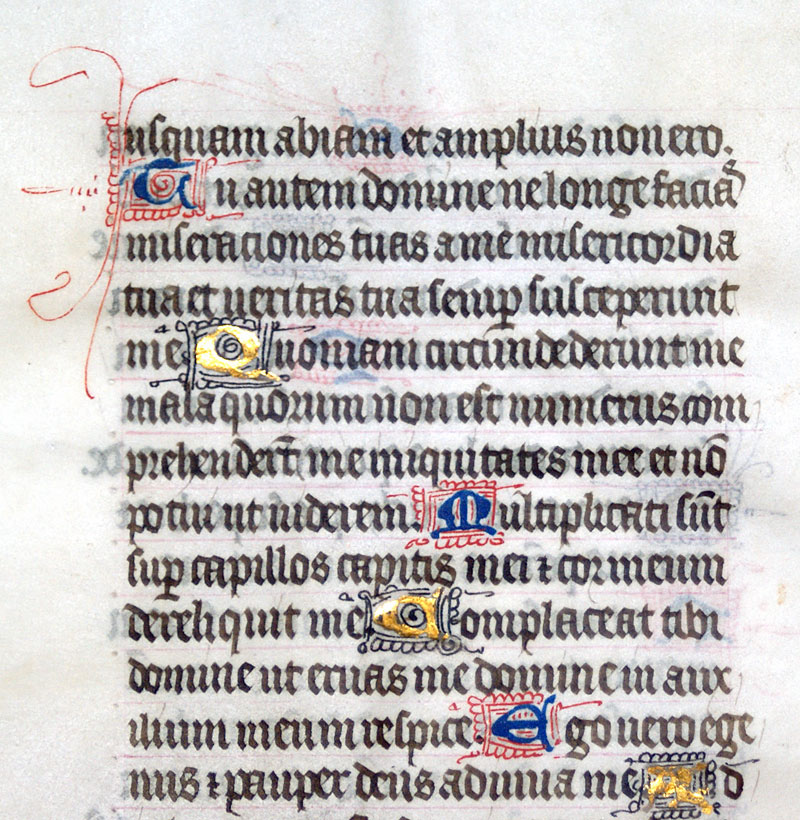 nusquam abiam et amplius non ero.
Tu autem domine ne longe facias
miseraciones tuas a me misericordia
tua et ueritas tua semꝑ susceperunt
me Quoniam circūndederunt me
mala quorum non est numerus com
prehenderūt me iniquitates mee et nō
potui ut uiderem. Multiplicati sūt
suꝑ capillos capitis mei ⁊ cor meum
dereliquit me Complaceat tibi
domine ut eruas me domine in aux
ilium meum respice. Ego uero ege
nus ⁊ pauper deus adiuua me D